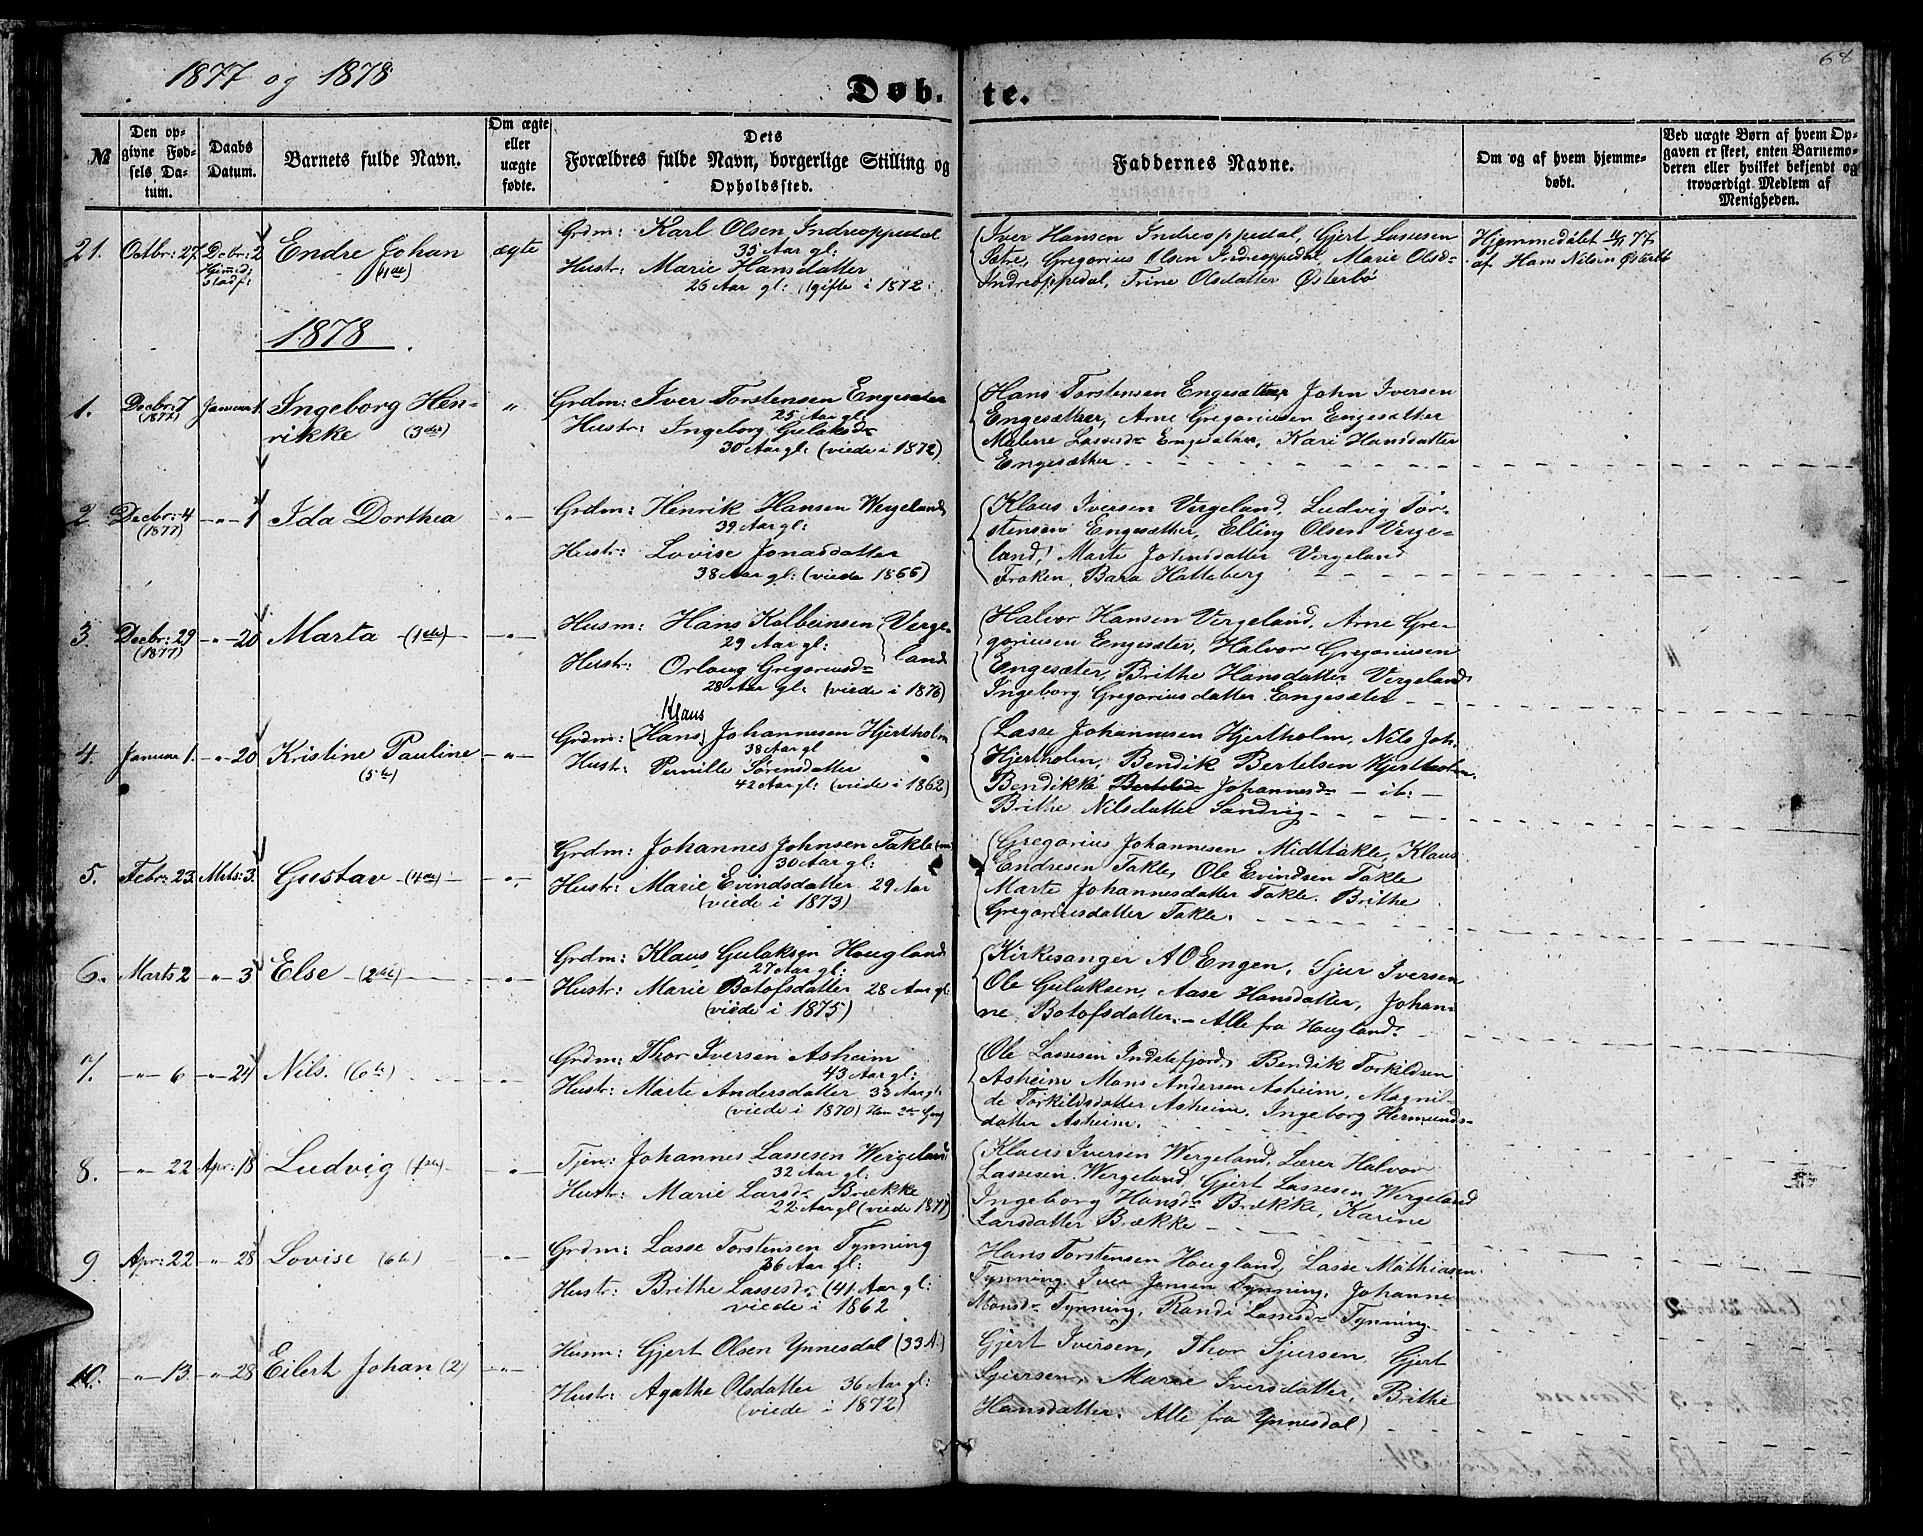 1877 og 1878
68
Døb- te.
№
Den opgivne Fødsels, Datum.
Daabs Datum.
Barnets fulde Navn.
Om ægte eller uægte fødte.
Dets Forældres fulde Navn, borgerlige Stilling og Opholdssted.
Faddernes Navne.
Om og af hvem hjemmedøbt.
Ved uægte Børn af hvem Opgaven er skeet, enten Barnemoderen eller hvilket bekjendt og troværdigt Medlem af Menigheden.
21. Octbr: 27. Decbr: 2 Endre Johan ægte
Hjemmed: Stadf:
(4de)
Grdm: Karl Olsen Indreoppedal
35 Aar gl:
Hustr: Marie Hansdatter
26 Aar gl: (gifte i 1872:
Iver Hansen Indreoppedal, Gjert Lassesen
Sætre, Gregorius Olsen Indreoppedal, Marie Olsd-
Indreoppedal, Trine Olsdatter Østerbø
Hjemmedøbt 11/11 77
af Hans Nilsen Østerbø
1878
1. Decbr: 7 (1877) Januar 1. Ingeborg Hen-
rikke (3die) "
Grdm: Iver Torstensen Engesæter
25 Aar gl:
Hustr: Ingeborg Gulaksd-
30 Aar gl: (viede i 1872)
Hans Torstensen Engesæther, John Iversen
Engesæther, Arne Gregoriusen Engesæther
Malene Lassesd- Engesæther, Kari Hansdatter
Engesæther
2 Decbr: 4 (1877) -"- 1 Ida Dorthea -"-
Grdm: Henrik Hansen Wergeland
39 Aar gl:
Hustr: Lovise Jonasdatter
38 Aar gl: (viede 1866)
Klaus Iversen Vergeland, Ludvig Tor-
stensen Engesæther, Elling Olsen Verge-
land, Marte Johnsdatter Vergeland
Frøken, Bara Hatteberg
3. Decbr: 29 (1877) -"- 20 Marta (1ste) -"-
Husm: Hans Kolbeinsen Verge-
29 Aar gl:
land
Hustr: Orloug Gregoriusd-
28 Aar gl: (viede i 1876)
Halvor Hansen Vergeland, Arne Gre-
goriusen Engesæter, Halvor Gregoriusen
Engesæter, Brithe Hansdatter Vergeland
Ingeborg Gregoriusdatter Engesæter
"
4. Januar 1. -"- 20 Kristine Pauline -"-
(5te)
Klaus
Grdm: (Hans) Johannesen Hjertholm
38 Aar gl
Hustr: Pernille Sørensdatter
42 Aar gl: (viede i 1862)
Lasse Johannesen Hjertholm, Nils Joh.
Hjertholm, Bendik Bertelsen Hjertholm.
Bendikke Bertelsd- Johannesd- - ib: -
Brithe Nilsdatter Sandvig
5. Febr: 23. Mrts: 3. Gustav (4de) -"-
Grdm: Johannes Johnsen Takle
30 Aar gl:
Hustr: Marie Evindsdatter 29 Aar
(viede i 1873)
Gregorius Johannesen Midttakle, Klaus
Endresen Takle, Ole Evindsen Takle
Marte Johannesdatter Takle. Brithe
Gregoriusdatter Takle.
6. Marts 2 -"- 3 Else (2de) -"-
Grdm: Klaus Gulaksen Hougland
27 Aar gl:
Hustr: Marie Botofsdatter 28 Aar gl:
(viede i 1875)
Kirkesanger A O Engen, Sjur Iversen
Ole Gulaksen, Aase Hansdatter, Johan-
ne Botofsdatter. - Alle fra Hougland.
7. -"- 6 -"- 24 Nils. (6te) -"-
Grdm: Thor Iversen Asheim
43 Aar gl:
Hustr: Marte Andersdatter 33 Aar gl:
(viede i 1870) Han 2den Gang
Ole Lassesen Indrefjord, Bendik Torkildsen
Asheim Mons Andersen Asheim, Magnil-
de Torkildsdatter Asheim. Ingeborg Hermunds-
datter Asheim.
8. -"- 22 Apr: 18 Ludvig (1ste) -"-
Tjen: Johannes Lassesen Wergeland
32 Aar gl:
Hustr: Marie Larsd- Brække
22 Aar gl (viede 1877)
Klaus Iversen Wergeland, Lærer Halvor
Lassesen Wergeland, Gjert Lassesen Wergeland
Ingeborg Hansd- Brække, Karine
Larsdatter Brække
9. Apr: 22 -"- 28 Lovise (6te) -"-
Grdm: Lasse Torstensen Tynning
36 Aar gl:
Hustr: Brithe Lassesd- (41 Aar gl:
viede i 1862
Hans Torstensen Hougland, Lasse Mathiasen.
Tynning, Iver Jensen Tynning, Johanne
Monsd- Tynning, Randi Lassesd- Tynning
10. -"- 13. -"- 28 Eilert Johan (2) -"-
Husm: Gjert Olsen Ynnesdal (33 A.)
Hustr: Agathe Olsdatter 36 Aar gl:
(viede i 1872)
Gjert Iversen, Thor Sjursen, Gjert
Sjursen, Marie Iversdatter, Brithe
Hansdatter. Alle fra Ynnesdal)